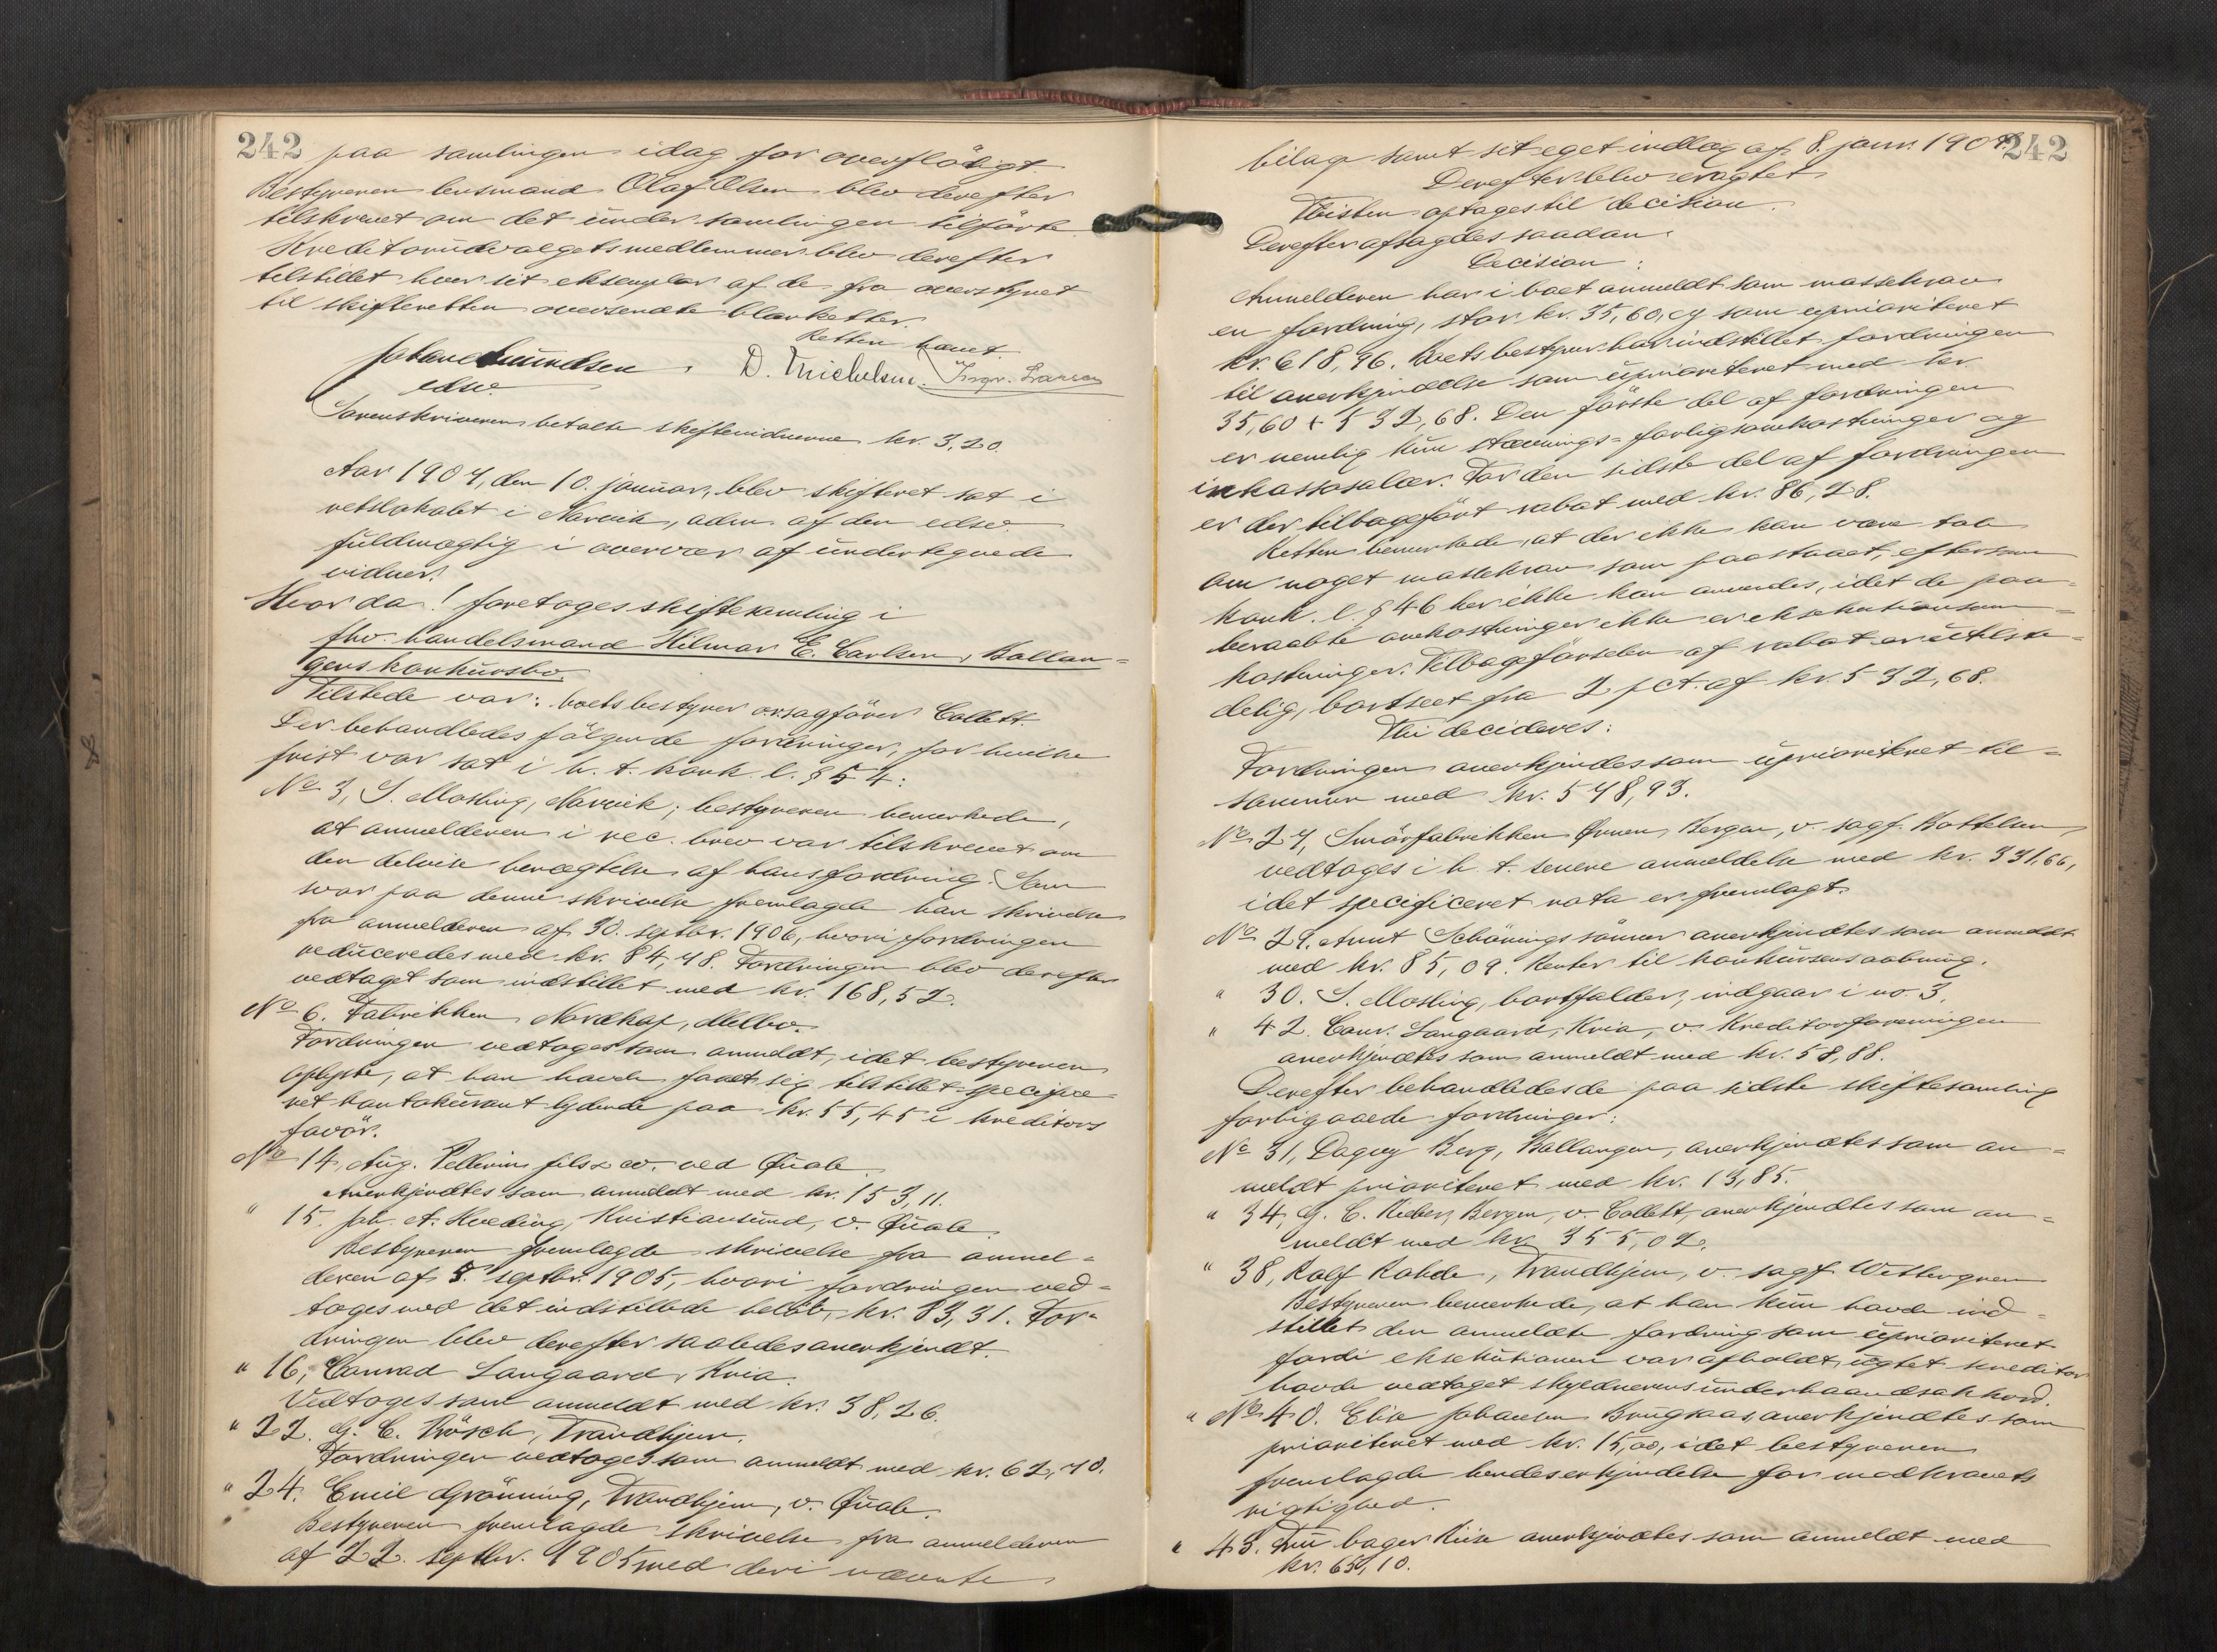 242
paa samlingen idag for overflödigt.
Bestyreren lensmand Olaf Olsen blev derefter
tilskrevet om det under samlingen tilförte.
Kreditorudvalgets medlemmer blev derefter
tilstillet hver sit eksemplar af de fra overstyret
til skifteretten oversendte blanketter.
Retten hævet.
D. Michelsen.
edsv.
Sorenskriveren betalte skiftevidnerne kr. 3,20.
Aar 1907, den 10. januar, blev skifteret sat i
retslokalet i Narvik, adm. af den edsv.
fuldmægtig i overvær af undertegnede
vidner.
Hvor da! foretoges skiftesamling i
fhv. handelsmand Hilmar E. Carlsen, Ballan=
gens konkursbo.
Tilstede var: boets bestyrer o.r.sagförer Collett.
Der behandledes fölgende fordringer, for hvilke
frist var sat i h. t. konk. l. § 54:
No 3, S. Mosling, Narvik; bestyreren bemerkede,
at anmelderen i rec. brev var tilskrevet om
den delvise benægtelse af hans fordring. Som
svar paa denne skrivelse fremlagde han skrivelse
fra anmelderen af 30. septbr. 1906, hvori fordringen
reduceredes med kr. 84,48. Fordringen blev derefter
vedtaget som indstillet med kr. 168,52.
No 6. Fabrikken Nordkap, Melbo.
Fordringen vedtoges som anmeldt, idet bestyreren
oplyste, at han havde faaet sig tilstillet specifice=
ret kontokurant lydende paa kr. 55,45 i kreditors
favör.
No 14, Aug. Pellerin fils & co. ved Quale.
Anerkjendtes som anmeldt med kr. 153,11.
" 15. Joh. A. Hveding, Kristiansund, v. Quale.
Bestyreren fremlagde skrivelse fra anmel=
deren af 5. septbr. 1905, hvori fordringen ved=
toges med det indstillede belöb, kr. 83,31. For=
dringen blev derefter saaledes anerkjendt.
" 16, Conrad Langaard, Kria.
Vedtoges som anmeldt med kr. 38,26.
" 22. G. C. Kösch, Trondhjem.
Fordringen vedtoges som anmeldt med kr. 62,40.
" 24. Emil Grönning, Trondhjem, v. Quale.
Bestyreren fremlagde skrivelse fra anmelderen
af 22. septbr. 1905 med deri nævnte
242
bilag samt sit eget indlæg af 8. janr. 1907.
Derefter blev eragtet
Tvisten optages til decision.
Derefter afsagdes saadan
Decision:
Anmelderen har i boet anmeldt som massekrav
en fordring, stor kr. 35,60, og som uprioriteret
kr. 618,96. Boets bestyrer har indstillet fordringen
til anerkjendelse som uprioriteret med kr.
35,60 + 532,68. Den förste del af fordringen
er nemlig kun stævnings= forligsomkostninger og
inkassosalær. For den sidste del af fordringen
er der tilbageført rabat med kr. 86,28.
Retten bemerkede, at der ikke kan være tale
om noget massekrav som paastaaet, eftersom
konk. l. § 46 her ikke kan anvendes, idet de paa=
beraabte omkostninger ikke er eksekutionsom=
kostninger. Tilbageförselen af rabat er utilste=
delig, bortseet fra 2 pct. af kr. 532,68.
Thi decideres:
Fordringen anerkjendes som uprioriteret til=
sammen med kr. 548,93.
No 27, Smörfabrikken Ørnen, Bergen, v. sagf. Bottelsen,
vedtoges i h. t. senere anmeldelse med kr. 331,66,
idet specificeret nota er fremlagt.
No 29. Arnt Schönings sönner anerkjendtes som anmeldt
med kr. 85,09. Renter til konkursens aabning.
" 30. S. Mosling, bortfalder, indgaar i no. 3.
" 42. Conr. Langaard, Kria, v. Kreditorforeningen
anerkjendtes som anmeldt med kr. 58,88.
Derefter behandledes de paa sidste skiftesamling
forbigaaede fordringer:
No 31, Dagny Berg, Ballangen, anerkjendtes som an=
meldt prioriteret med kr. 13,85.
" 34, G. C. Rieber, Bergen, v. Collett, anerkjendtes som an=
meldt med kr. 355,02.
" 38, Rolf Rohde, Trondhjem, v. sagf. Wettergreen
Bestyreren bemerkede, at han kun havde ind=
stillet den anmeldte fordring som uprioriteret
fordi eksekutionen var afholdt, uagtet kreditor
havde vedtaget skyldnerens underhaandsakkord.
" No 40. Elise Johansen Brugsaas anerkjendtes som
prioriteret med kr. 15,00, idet bestyreren
fremlagde hendes erkjendelse for modkravets
rigtighed.
" 43. Fru bager Riise anerkjendtes som anmeldt med
kr. 650,10.